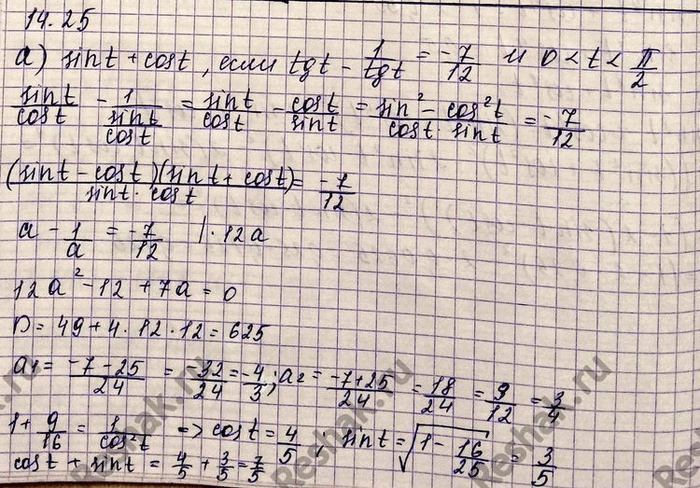 14.25
а) sint + cost, если tgt - 1/tgt = -7/12 и 0 < t < π/2
sint/cost - 1/(sint/cost) = sint/cost - cost/sint = (sin² - cos²t)/(cost · sint) = -7/12
(sint - cost)(sint + cost)/(sint · cost) = -7/12
a - 1/a = -7/12 | · 12a
12a² - 12 + 7a = 0
D = 49 + 4 · 12 · 12 = 625
a₁ = (-7 - 25)/24 = -32/24 = -4/3; a₂ = (-7 + 25)/24 = 18/24 = 9/12 = 3/4
1 + 9/16 = 1/cos²t => cost = 4/5, sint = √(1 - 16/25) = 3/5
cost + sint = 4/5 + 3/5 = 7/5
Reshak.ru
Reshak.ru
Reshak.ru